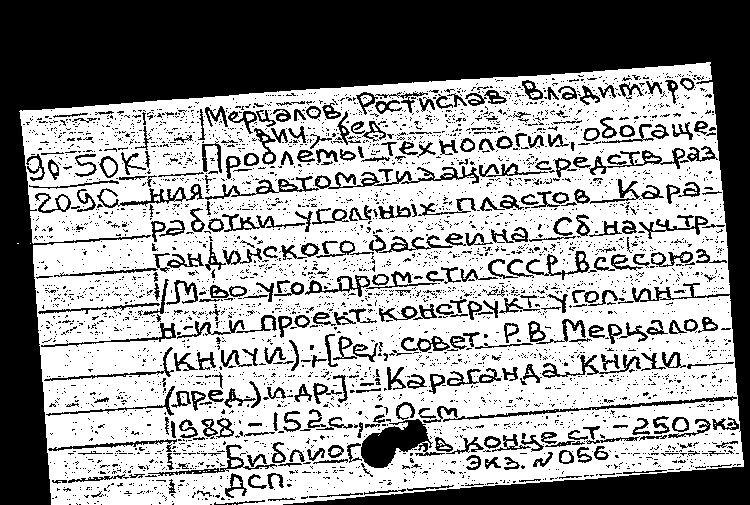 Мерцалов, Ростислав Владимиро-
вич, ред.
90-50К Проблемы технологии, обогаще-
2090 ния и автоматизации средств раз
работки угольных пластов Кара-
гандинского бассейна: Сб. науч. тр.
/М-во угол. пром-сти СССР, Всесоюз
н.-и. и проект. конструкт. угол. ин-т
(КНИУИ); [Ред. совет: Р.В. Мерцалов
(пред.) и др.]. - Караганда: КНИУИ.
1988. - 152 с.; 20 см
Библиог в конце ст. - 250 экз
экз. N 056.
ДСП.